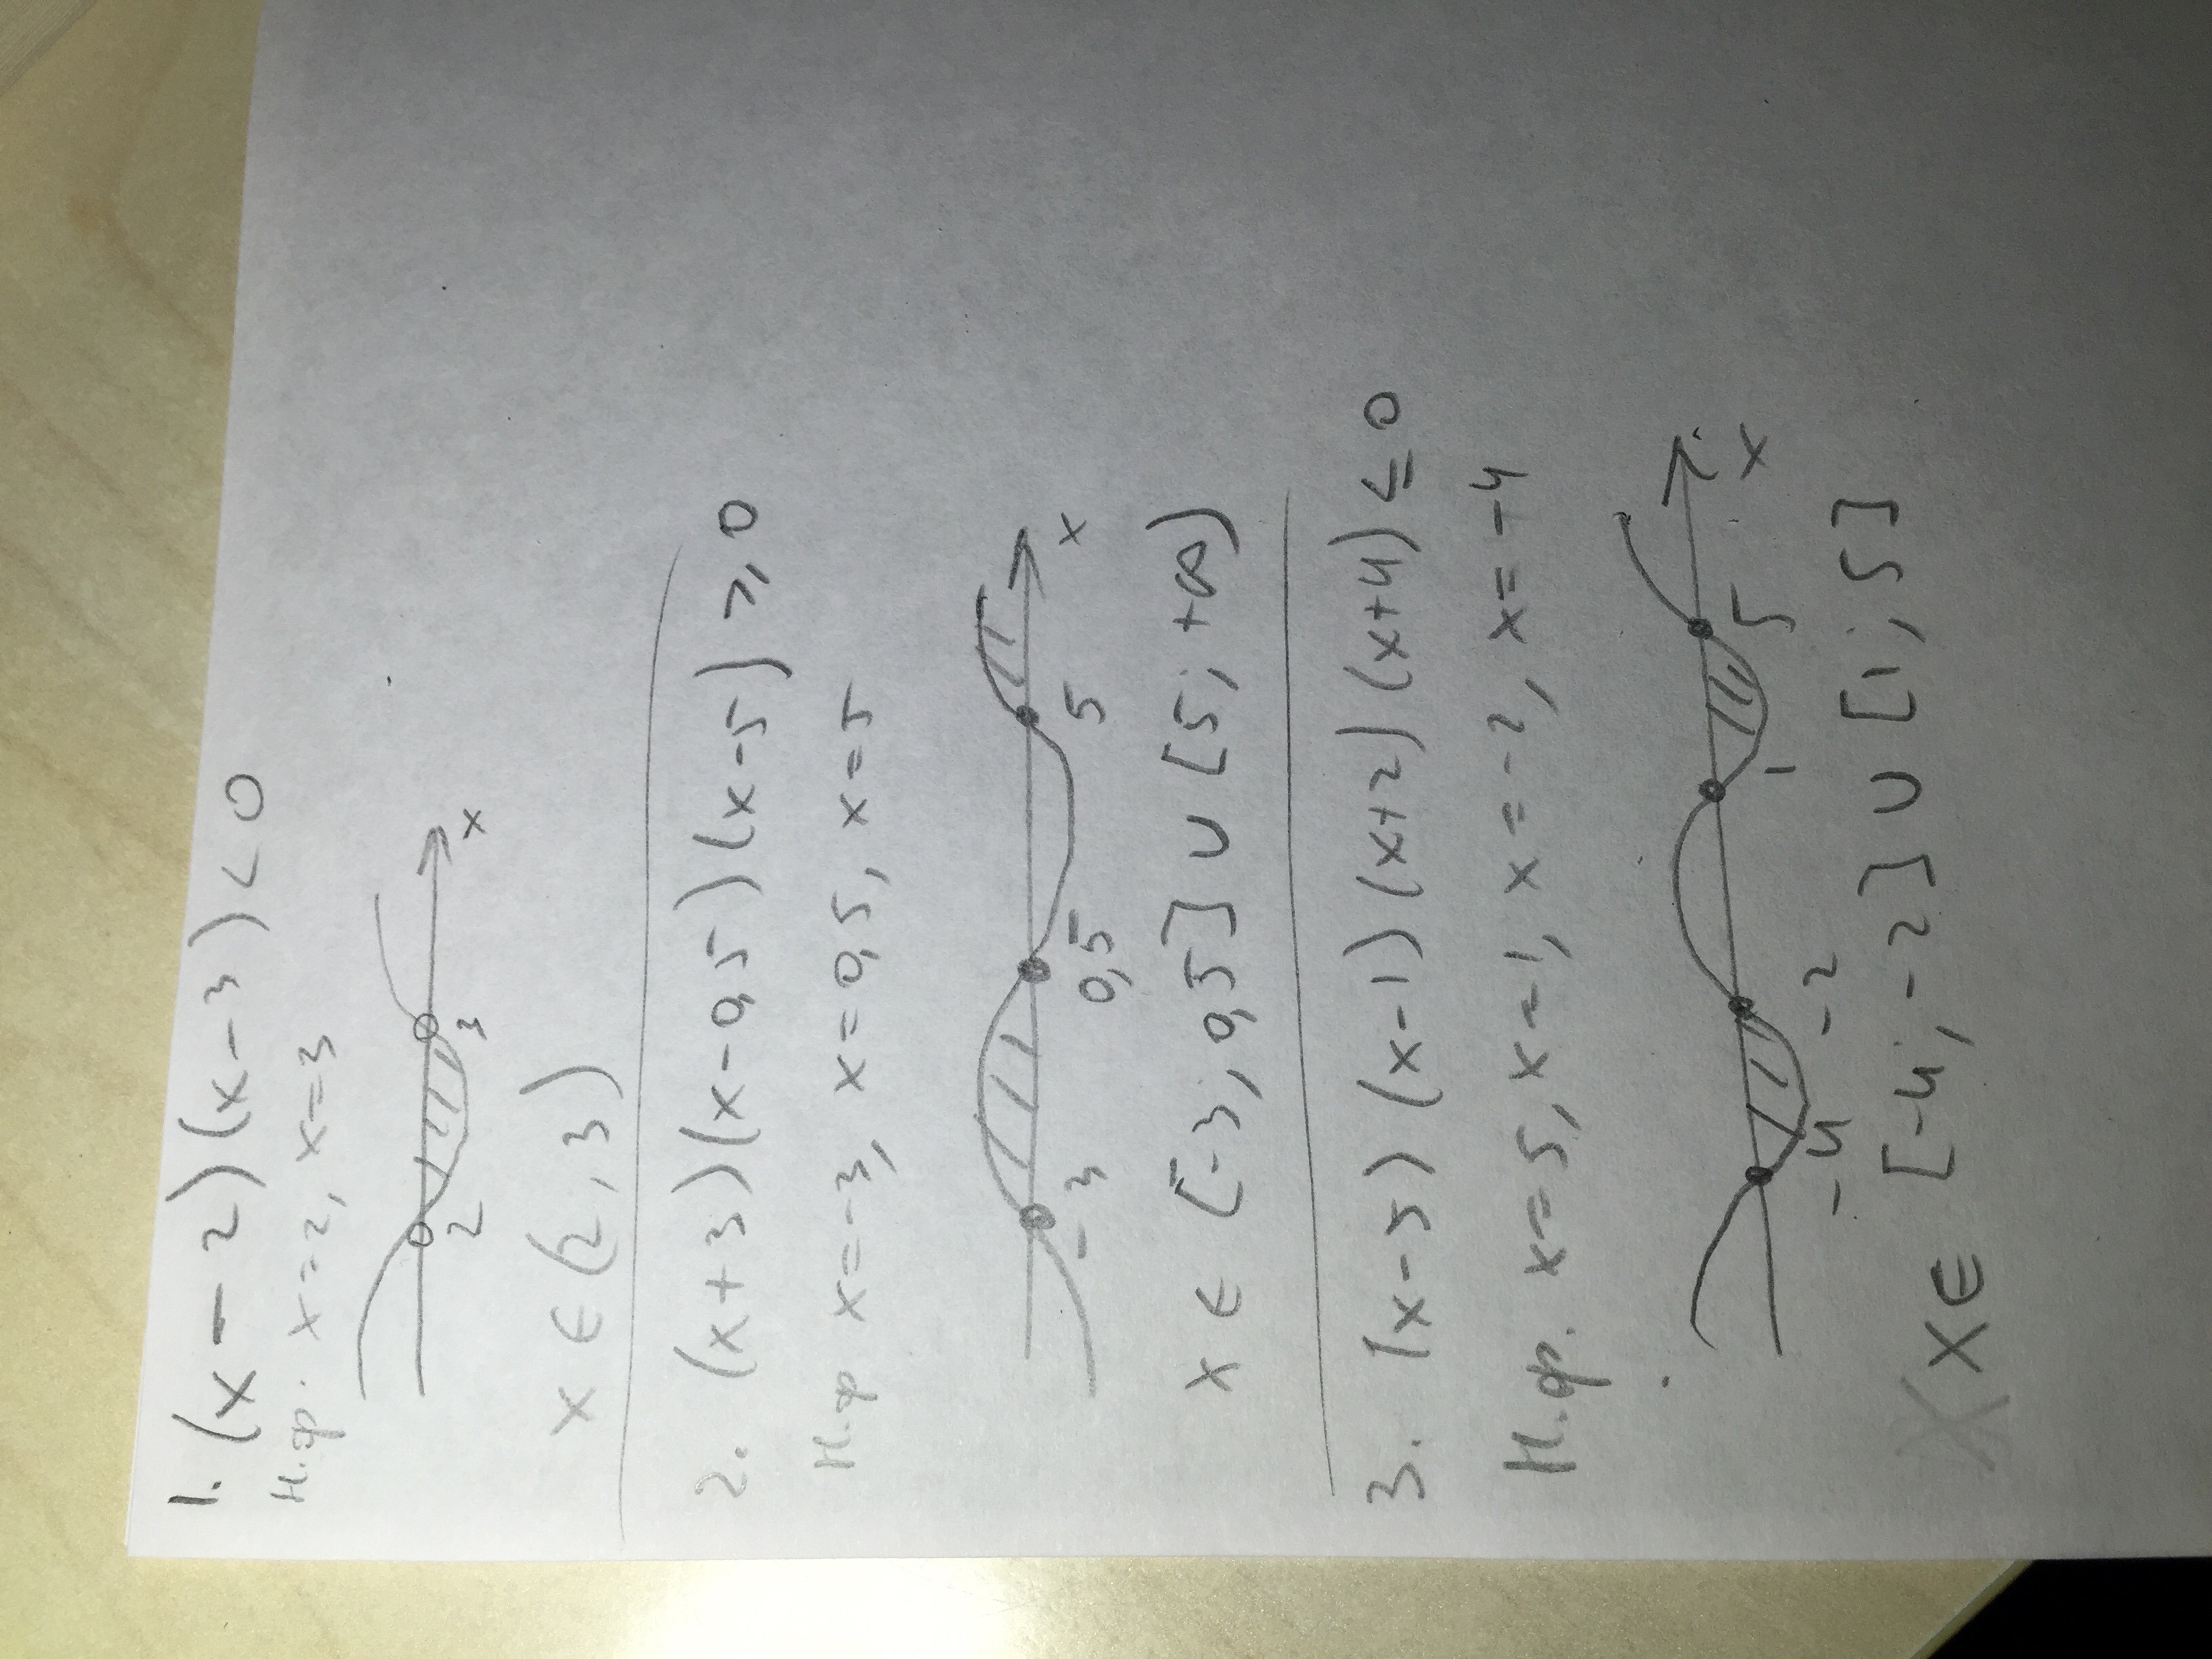 1. (x - 2)(x - 3) < 0
Н.ф. x=2, x=3
2 3 x
x ∈ (2, 3)
2. (x + 3)(x - 0,5)(x - 5) ⩾ 0
Н.ф x=-3, x=0,5, x=5
-3 0,5 5 x
x ∈ [-3, 0,5] ∪ [5; +∞)
3. (x - 5)(x - 1)(x+2)(x+4) ≤ 0
Н.ф. x=5, x=-1, x=-2, x=-4
-4 -2 1 5 x
x ∈ [-4; -2] ∪ [1; 5]